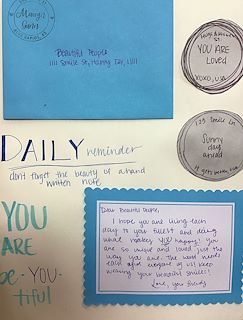 Beautiful People
1111 Smile St, Happy Day, 11111
YOU ARE
Loved
XOXO, USA
123 Smile Ln
Sunny
day
ahead
DAILY reminder
don't forget the beauty of a hand
written note
YOU
ARE
be-YOU-
tiful
Dear Beautiful People,
I hope you are living each
day to your fullest and doing
what makes YOU happy! You
are so unique and loved just the
way you are. The world needs
each of us! Keep
wearing your beautiful smiles!
Love, your friends